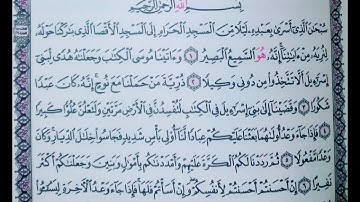 بِسْمِ اللَّهِ الرَّحْمَٰنِ الرَّحِيمِ
سُبْحَٰنَ الَّذِي أَسْرَىٰ بِعَبْدِهِ لَيْلًا مِّنَ الْمَسْجِدِ الْحَرَامِ إِلَى الْمَسْجِدِ الْأَقْصَا الَّذِي بَٰرَكْنَا حَوْلَهُ
لِنُرِيَهُ مِنْ ءَايَٰتِنَا إِنَّهُ هُوَ السَّمِيعُ الْبَصِيرُ ١ وَءَاتَيْنَا مُوسَى الْكِتَٰبَ وَجَعَلْنَٰهُ هُدًى لِّبَنِي
إِسْرَٰءِيلَ أَلَّا تَتَّخِذُوا مِن دُونِي وَكِيلًا ٢ ذُرِّيَّةَ مَنْ حَمَلْنَا مَعَ نُوحٍ إِنَّهُ كَانَ عَبْدًا
شَكُورًا ٣ وَقَضَيْنَا إِلَىٰ بَنِي إِسْرَٰءِيلَ فِي الْكِتَٰبِ لَتُفْسِدُنَّ فِي الْأَرْضِ مَرَّتَيْنِ وَلَتَعْلُنَّ عُلُوًّا كَبِيرًا
٤ فَإِذَا جَاءَ وَعْدُ أُولَىٰهُمَا بَعَثْنَا عَلَيْكُمْ عِبَادًا لَّنَا أُولِي بَأْسٍ شَدِيدٍ فَجَاسُوا خِلَٰلَ الدِّيَارِ وَكَانَ
وَعْدًا مَّفْعُولًا ٥ ثُمَّ رَدَدْنَا لَكُمُ الْكَرَّةَ عَلَيْهِمْ وَأَمْدَدْنَٰكُم بِأَمْوَٰلٍ وَبَنِينَ وَجَعَلْنَٰكُمْ أَكْثَرَ
نَفِيرًا ٦ إِنْ أَحْسَنتُمْ أَحْسَنتُمْ لِأَنفُسِكُمْ وَإِنْ أَسَأْتُمْ فَلَهَا فَإِذَا جَاءَ وَعْدُ الْءَاخِرَةِ لِيَسُءُوا